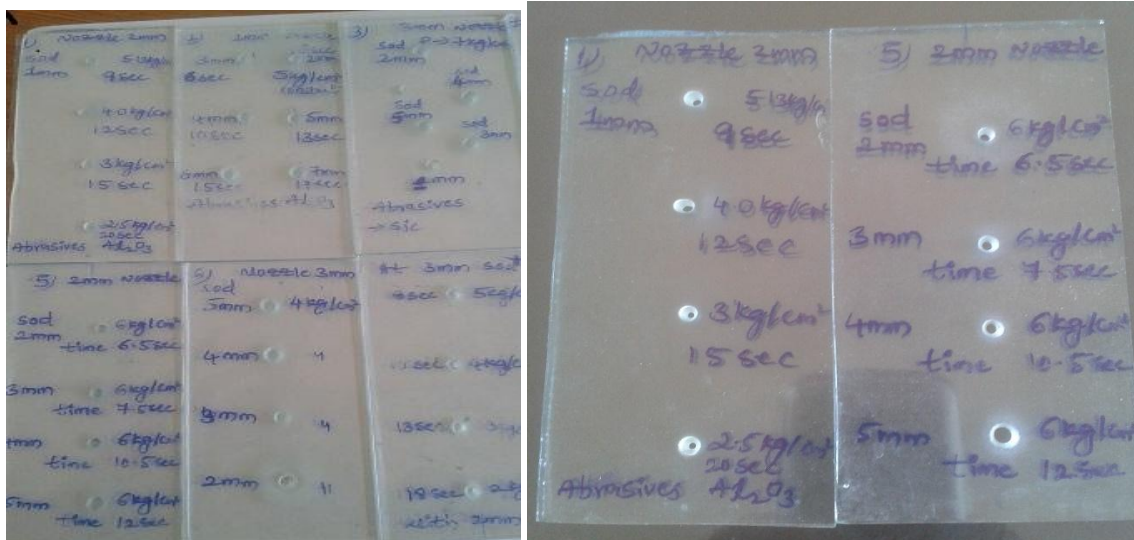 1) Nozzle 2mm
sod
1mm
9sec
4.0kg/cm²
12sec
3kg/cm²
15sec
2.5kg/cm²
20sec
Abrasives Al₂O₃
3mm
6sec
5kg/cm²
4mm
10sec
5mm
13sec
15sec
7mm
17sec
Abrasives Al₂O₃
3)
sod
2mm
sod
4mm
sod
5mm
sod
3mm
Abrasives
→ sic
5) 2mm Nozzle
sod
2mm
6kg/cm²
time 6.5sec
3mm
6kg/cm²
time 7.5sec
6kg/cm²
time 10.5sec
5mm
6kg/cm²
time 12sec
6) Nozzle 3mm
sod
5mm 4kg/cm²
4mm "
3mm "
2mm "
At 3mm sod
13sec
18sec
with 2mm
1) Nozzle 2mm
sod
1mm
9sec
4.0kg/cm²
12sec
3kg/cm²
15sec
2.5kg/cm²
20sec
Abrasives Al₂O₃
5) 2mm Nozzle
sod
2mm
6kg/cm²
time 6.5sec
3mm 6kg/cm²
time 7.5sec
4mm 6kg/cm²
time 10.5sec
5mm 6kg/cm²
time 12sec